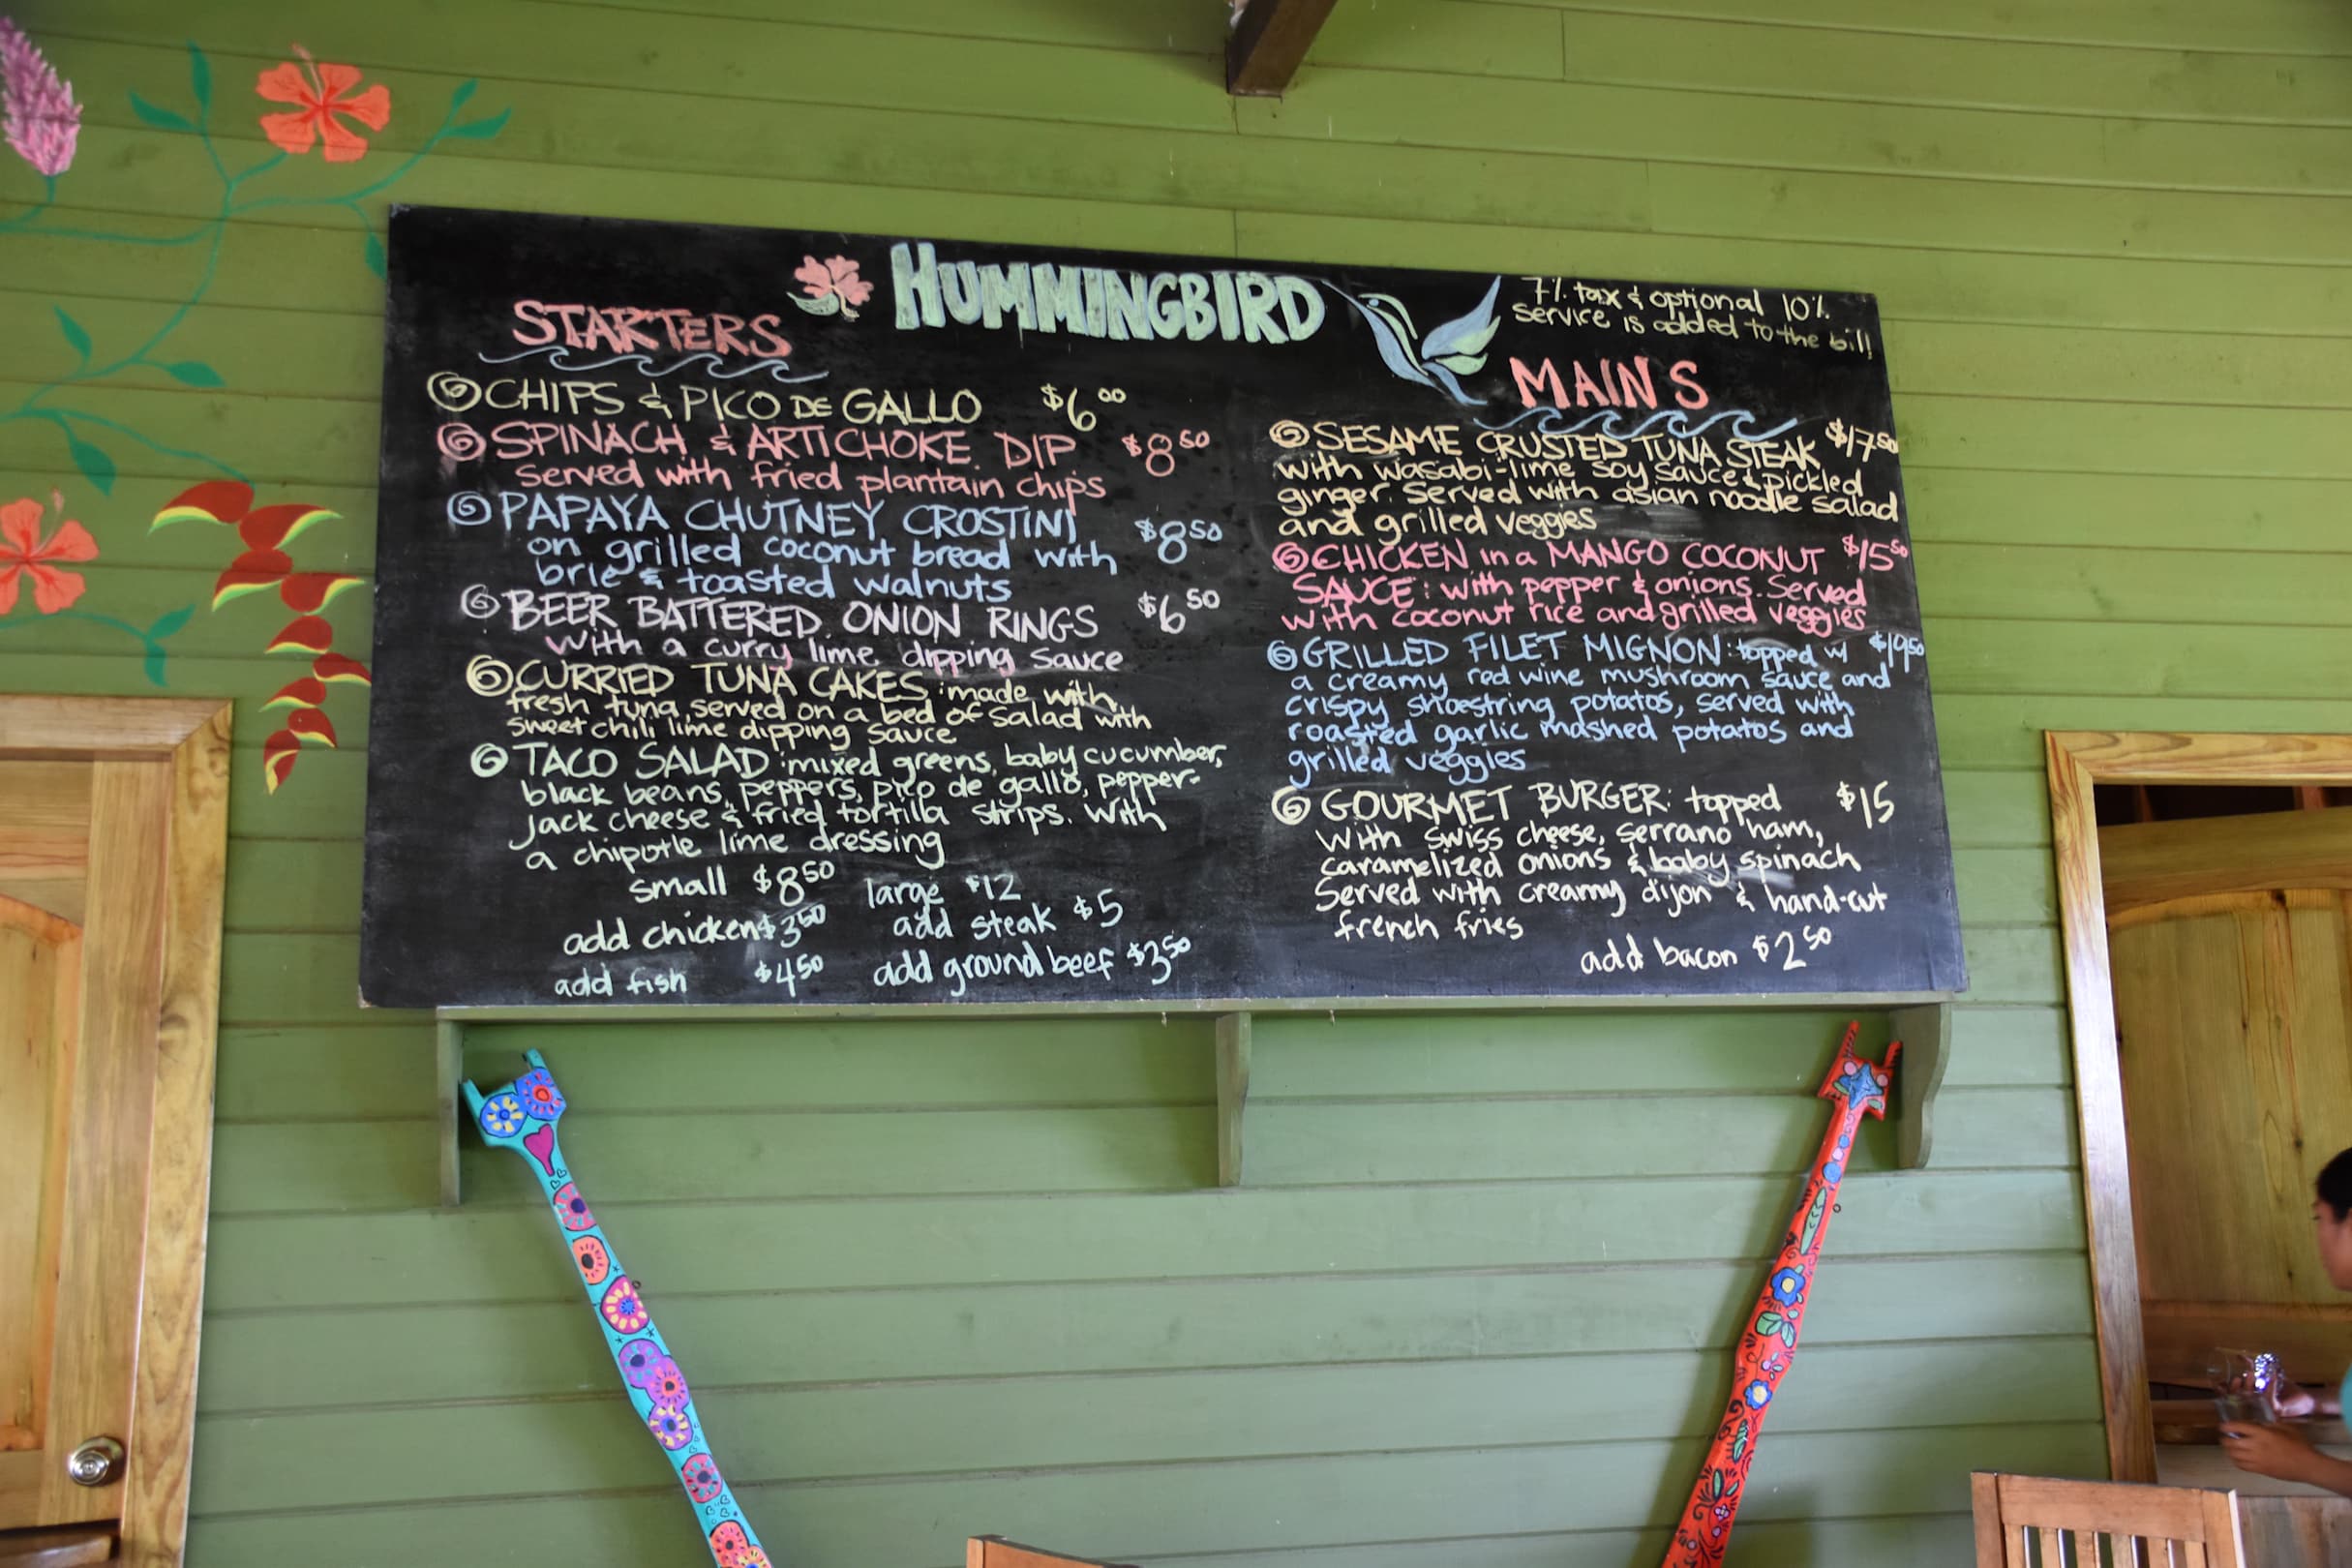 HUMMINGBIRD
7% tax & optional 10%
service is added to the bill!
STARTERS
CHIPS & PICO DE GALLO $6.00
SPINACH & ARTICHOKE DIP $8.50
served with fried plantain chips
PAPAYA CHUTNEY CROSTINI $8.50
on grilled coconut bread with
brie & toasted walnuts
BEER BATTERED ONION RINGS $6.50
with a curry lime dipping sauce
CURRIED TUNA CAKES: made with
fresh tuna served on a bed of salad with
sweet chili lime dipping sauce
TACO SALAD: mixed greens, baby cucumber,
black beans, peppers, pico de gallo, pepper-
jack cheese & fried tortilla strips. With
a chipotle lime dressing
small $8.50 large $12
add chicken $3.50 add steak $5
add fish $4.50 add ground beef $3.50
MAINS
SESAME CRUSTED TUNA STEAK $17.50
with wasabi-lime soy sauce & pickled
ginger. Served with asian noodle salad
and grilled veggies
CHICKEN in a MANGO COCONUT $15.50
SAUCE: with pepper & onions. Served
with coconut rice and grilled veggies
GRILLED FILET MIGNON: topped w/ $19.50
a creamy red wine mushroom sauce and
crispy shoestring potatos, served with
roasted garlic mashed potatos and
grilled veggies
GOURMET BURGER: topped $15
with swiss cheese, serrano ham,
caramelized onions & baby spinach
Served with creamy dijon & hand-cut
french fries
add bacon $2.50